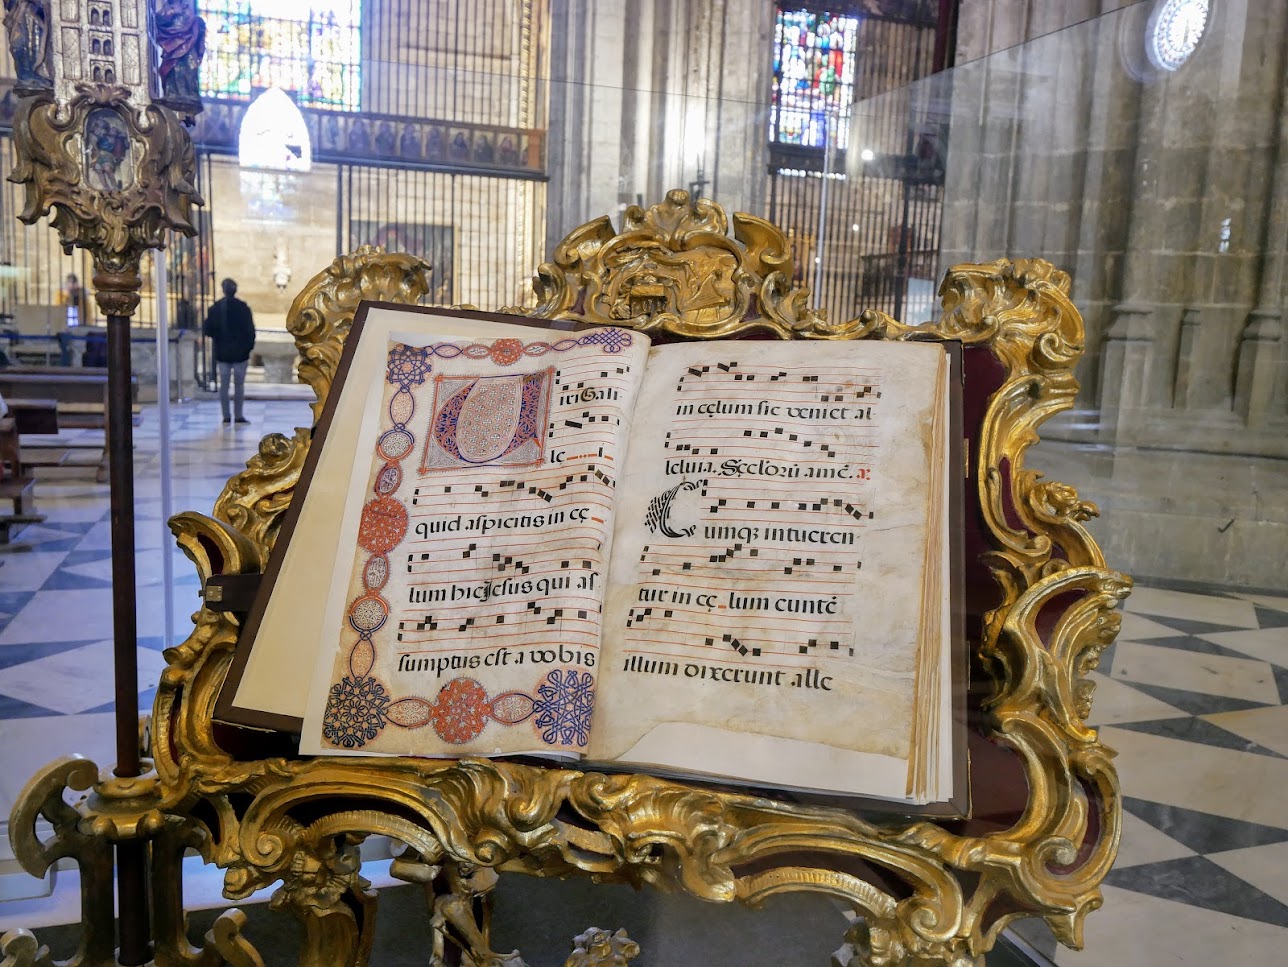 Viri Gali
le
quid aspicitis in cę
lum hic Jesus qui aſ
sumptus est a vobis
in cęlum sic veniet al
leluia. Sęcloꝝ amē. a:
Cumqꝫ intueren
tur in cę lum euntē
illum dixerunt alle